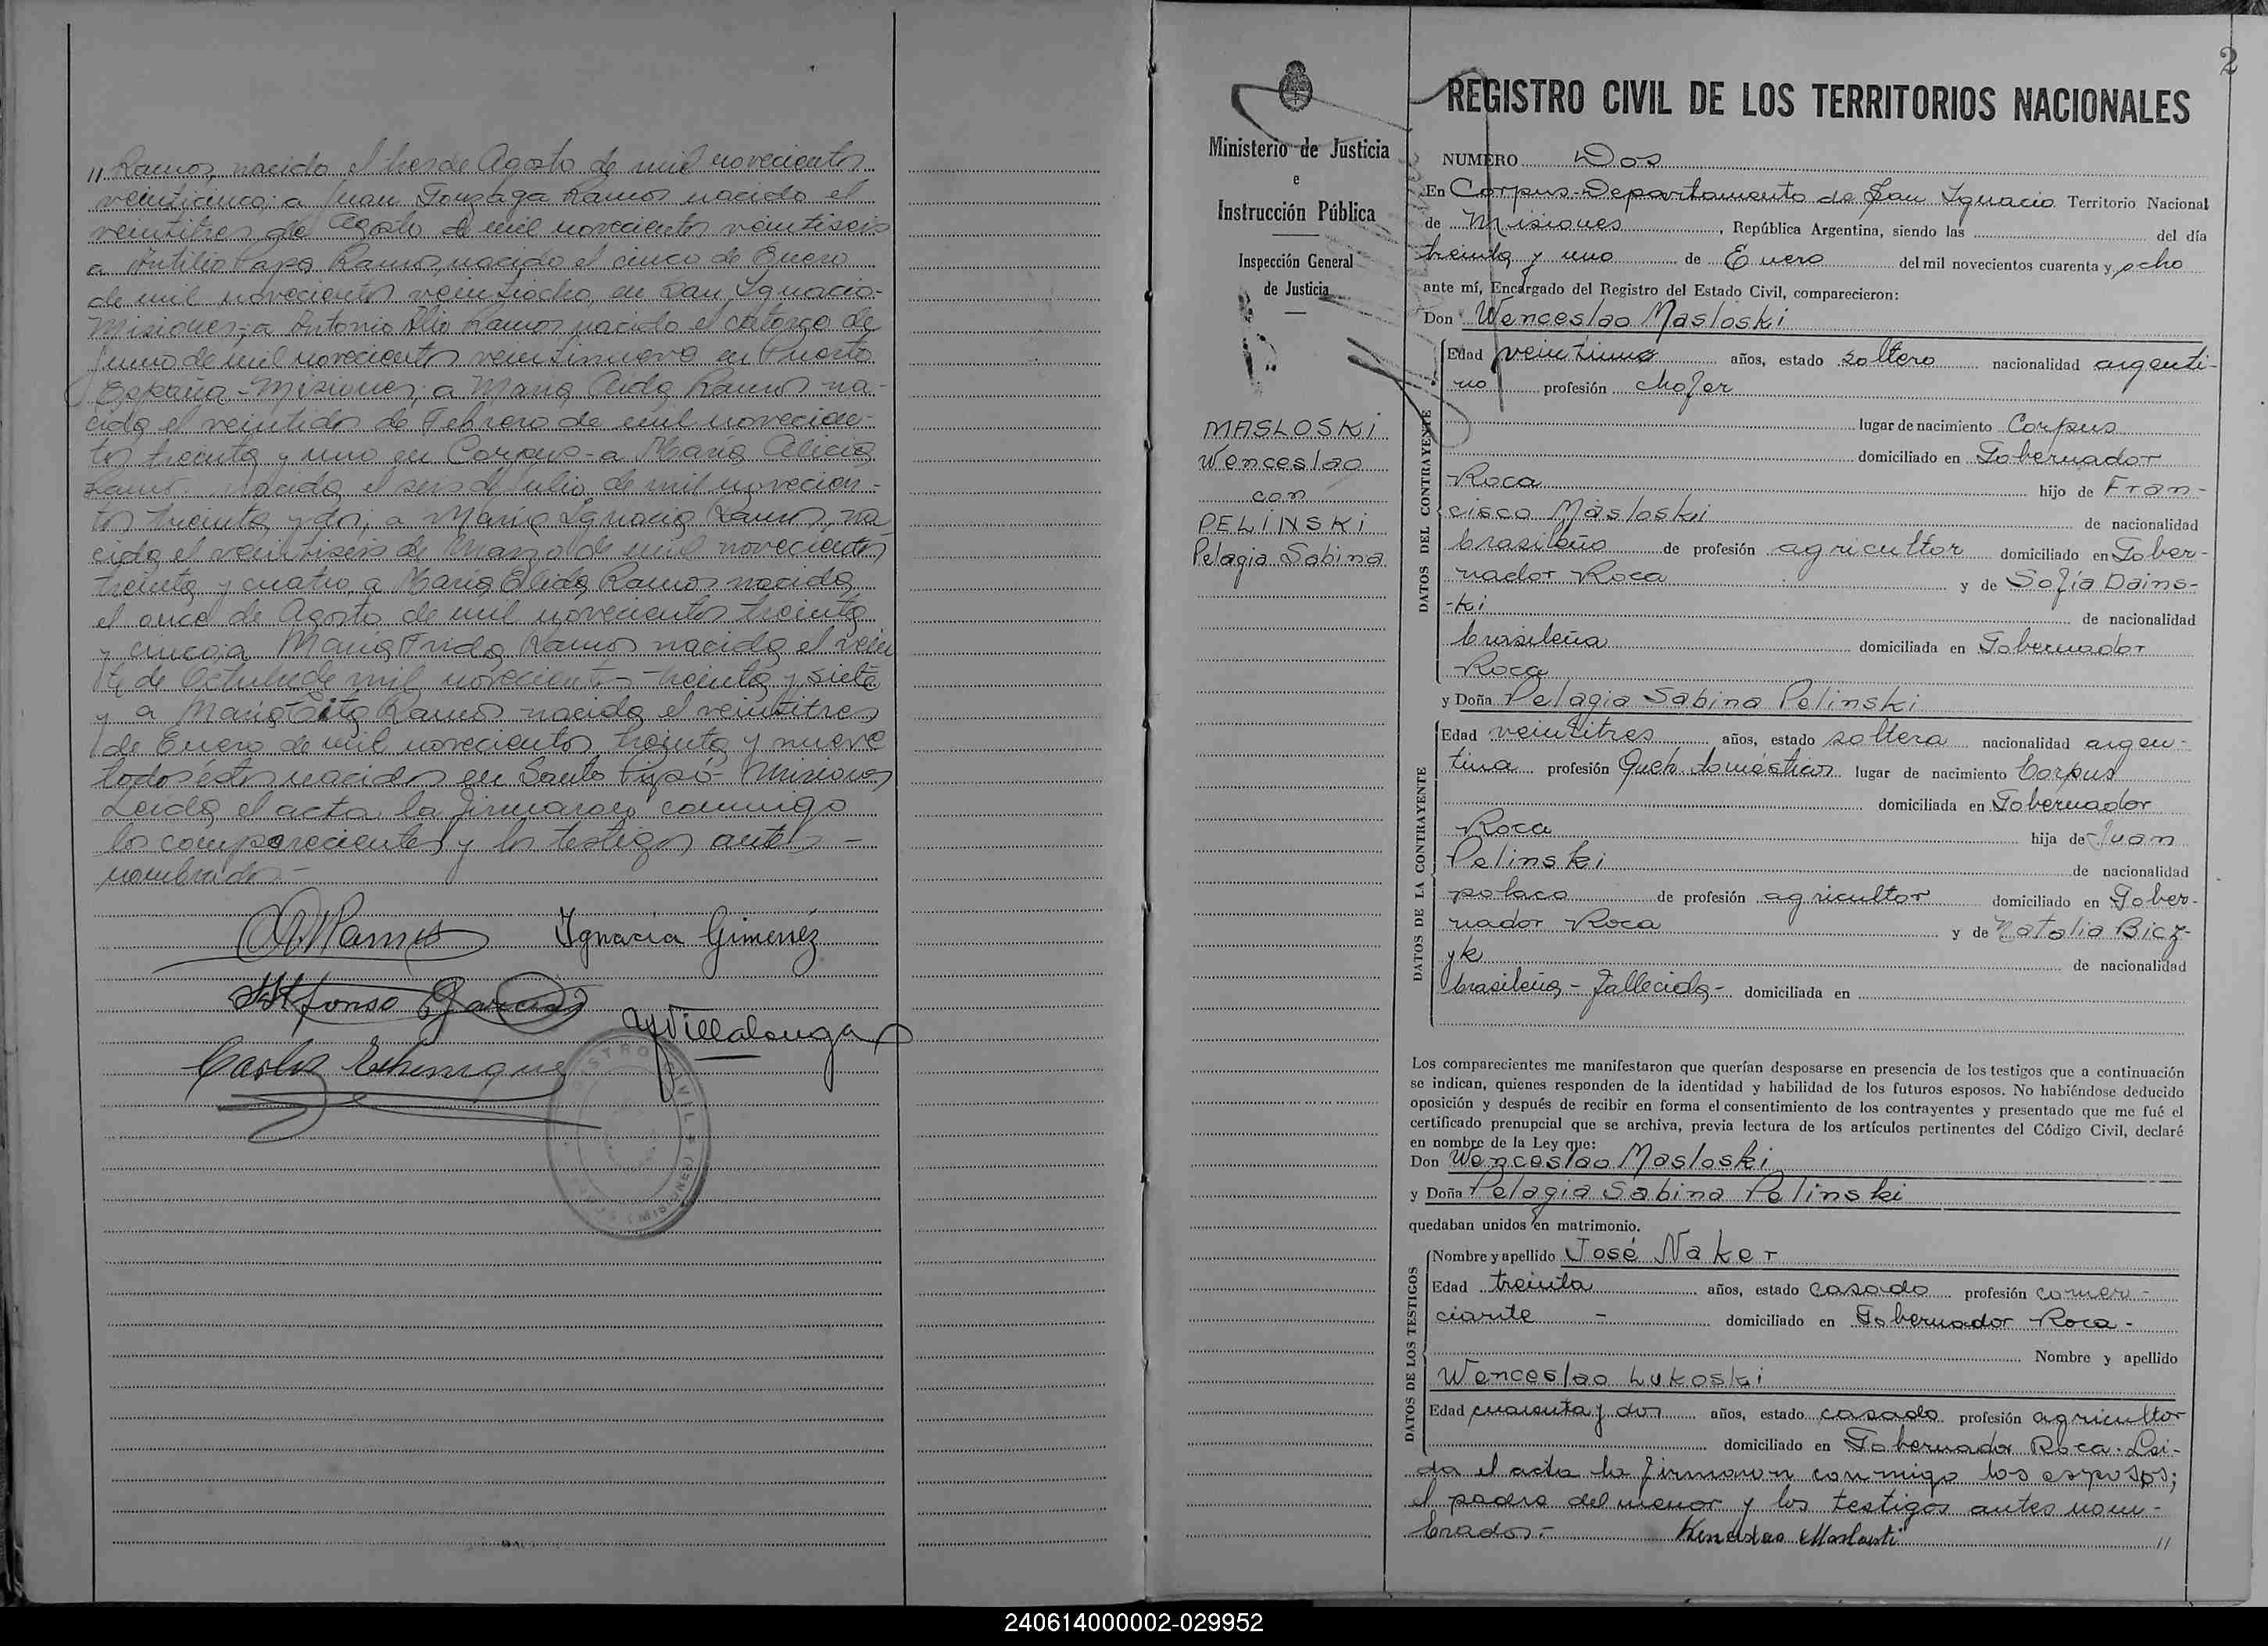 " Ramos, nacido el tres de Agosto de mil novecientos
veinticinco; a Juan Gonzaga Ramos nacido el
veintitres de Agosto de mil novecientos veintiseis
a Papa Ramos, nacido el cinco de Enero
de mil novecientos veintiocho, en San Ignacio-
Misiones; a Antonio Ramos nacido el catorce de
Junio de mil novecientos veintinueve en Puerto
España - Misiones; a Maria Aida Ramos na-
cida el veintidos de Febrero de mil novecien-
tos treinta y uno en Corpus - a Maria Alicia
Ramos nacida el seis de Julio de mil novecien-
tos treinta y dos; a Maria Ignacia Ramos, na
cida el veintiseis de Marzo de mil novecientos
treinta y cuatro, a Maria Elida Ramos nacida
el once de Agosto de mil novecientos treinta
y cinco; a Maria Frida Ramos nacida el vein
te de Octubre de mil novecientos treinta y siete
y a Maria Ramos nacida el veintitres
de Enero de mil novecientos treinta y nueve
todos éstos nacidos en Santo Pipó - Misiones
Leida el acta, la firmaron conmigo
los comparecientes y los testigos antes -
nombrados.-
Ramos Ignacia Gimenéz
Alfonso Garcia
Villalonga
Carlos
REGISTRO CIVIL (MISIONES)
2
Ministerio de Justicia
e
Instrucción Pública
Inspección General
de Justicia
MASLOSKI
Wenceslao
con
PELINSKI
Pelagia Sabina
REGISTRO CIVIL DE LOS TERRITORIOS NACIONALES
NUMERO Dos
En Corpus-Departamento de San Ignacio Territorio Nacional
de Misiones, República Argentina, siendo las del día
treinta y uno de Enero del mil novecientos cuarenta y ocho
ante mí, Encargado del Registro del Estado Civil, comparecieron:
Don Wenceslao Masloski
DATOS DEL CONTRAYENTE
Edad veintiuno años, estado soltero nacionalidad argenti-
no profesión chofer
lugar de nacimiento Corpus
domiciliado en Gobernador
Roca hijo de Fran-
cisco Masloski de nacionalidad
brasileño de profesión agricultor domiciliado en Gober-
nador Roca y de Sofía Dains-
-ki de nacionalidad
brasileña domiciliada en Gobernador
Roca
y Doña Pelagia Sabina Pelinski
DATOS DE LA CONTRAYENTE
Edad veintitres años, estado soltera nacionalidad argen-
tina profesión Queh. domésticos lugar de nacimiento Corpus
domiciliada en Gobernador
Roca hija de Juan
Pelinski de nacionalidad
polaco de profesión agricultor domiciliado en Gober-
nador Roca y de Natalia Bicz-
yk de nacionalidad
brasileña - fallecida - domiciliada en
Los comparecientes me manifestaron que querían desposarse en presencia de los testigos que a continuación
se indican, quienes responden de la identidad y habilidad de los futuros esposos. No habiéndose deducido
oposición y después de recibir en forma el consentimiento de los contrayentes y presentado que me fué el
certificado prenupcial que se archiva, previa lectura de los artículos pertinentes del Código Civil, declaré
en nombre de la Ley que:
Don Wenceslao Masloski
y Doña Pelagia Sabina Pelinski
quedaban unidos en matrimonio.
DATOS DE LOS TESTIGOS
Nombre y apellido José Naker
Edad treinta años, estado casado profesión comer-
ciante - domiciliado en Gobernador Roca -
Nombre y apellido
Wenceslao Lukoski
Edad cuarenta y dos años, estado casado profesión agricultor
domiciliado en Gobernador Roca. Lei-
da el acta la firmaron conmigo los esposos;
el padre del menor y los testigos antes nom-
brados.-
"
240614000002-029952